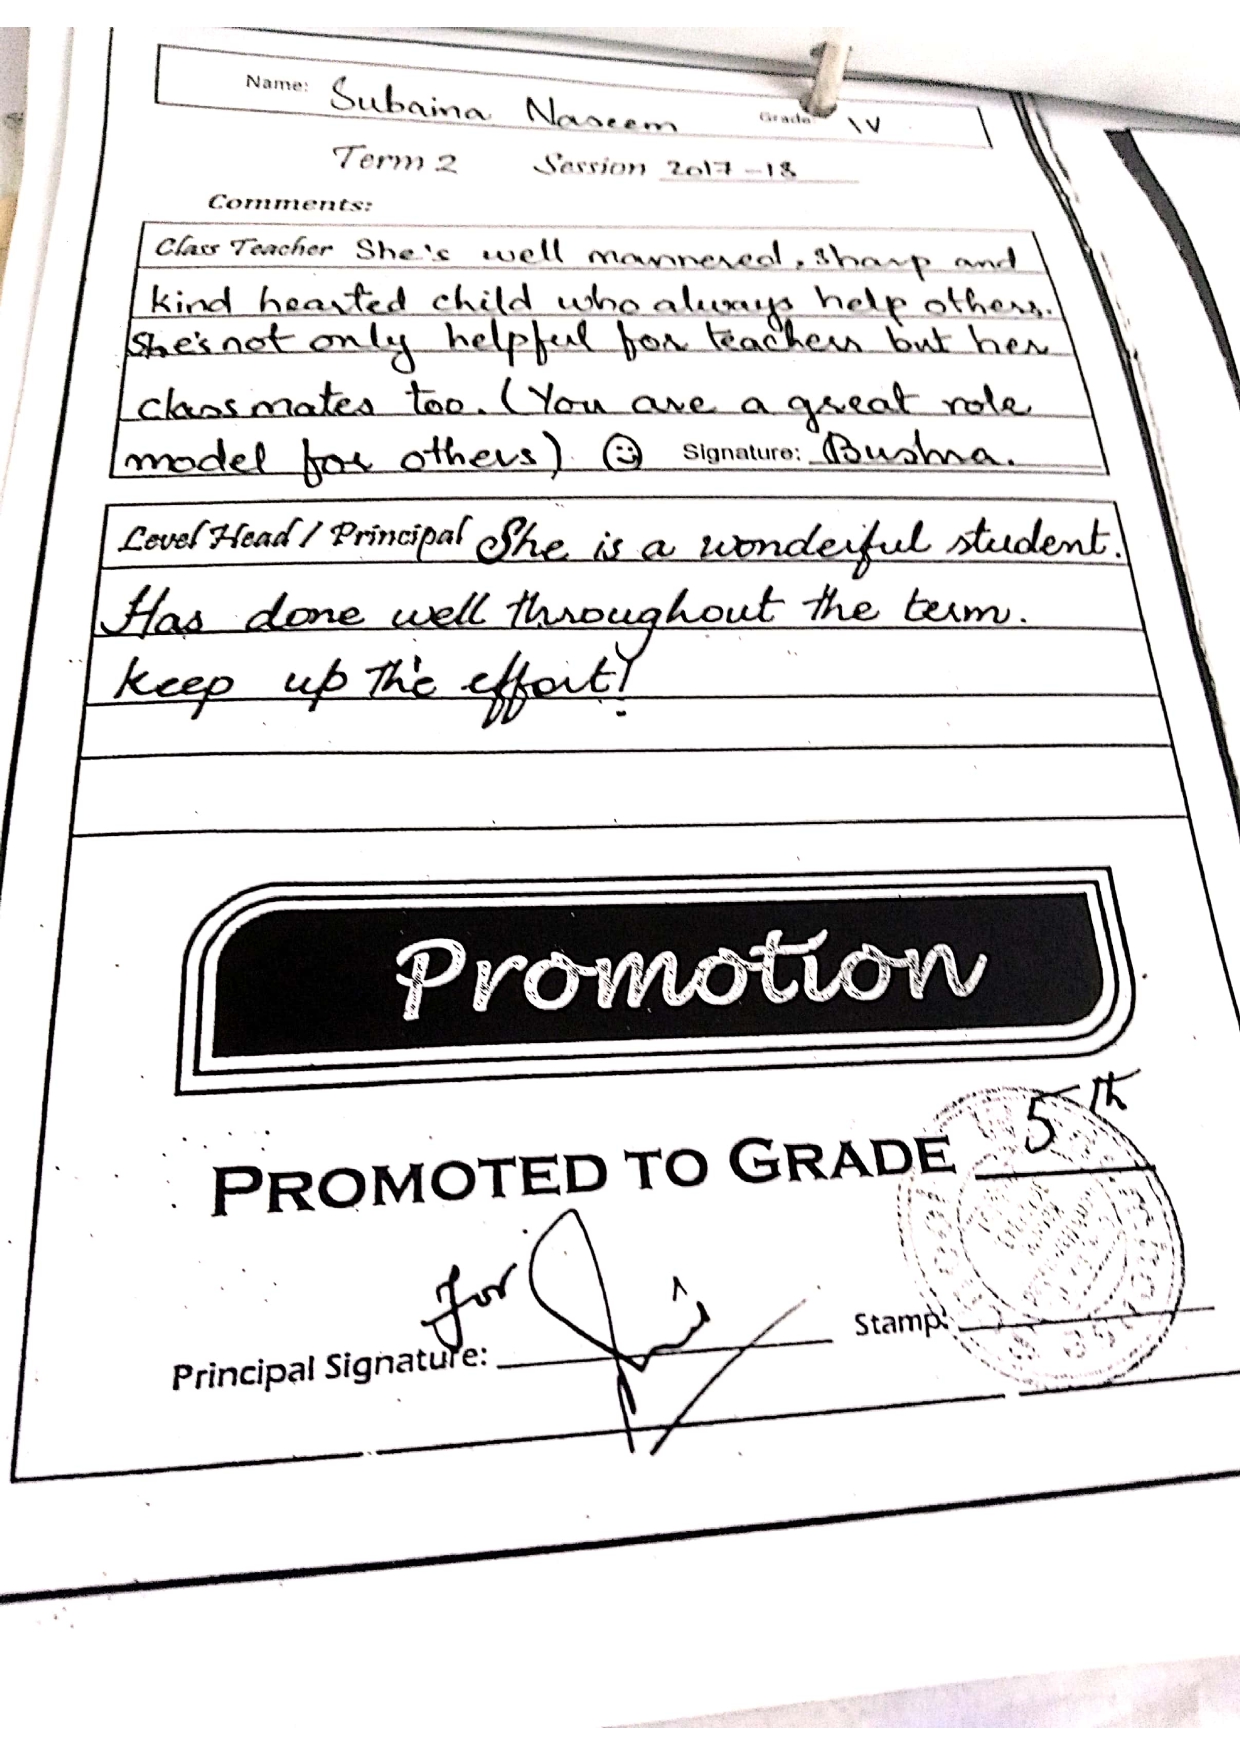 Name: Subaina Naseem Grade IV
Term 2 Session 2017-18
Comments:
Class Teacher She's well mannered, sharp and
kind hearted child who always help others.
She's not only helpful for teachers but her
classmates too. (You are a great role
model for others) ☺ Signature: Bushra.
Level Head / Principal She is a wonderful student.
Has done well throughout the term.
Keep up the effort!
Promotion
PROMOTED TO GRADE 5th
for
Principal Signature: Stamp: